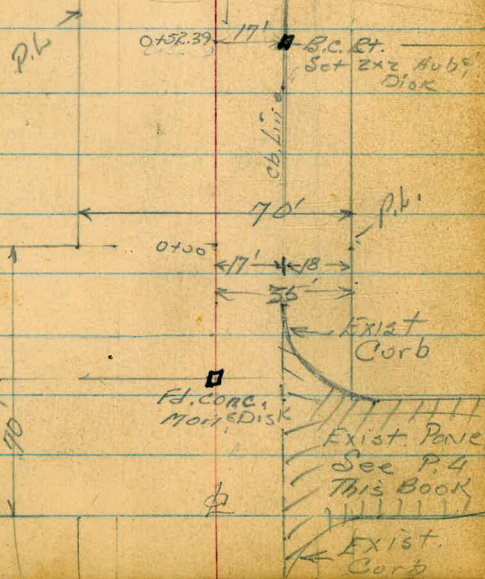 P.L
17'
0+52.39
B.C. Rt.
Set 2x2 Hub &
Disk
cb. Line
70'
P.L.
0+00
17' 18
35'
Exist
Curb
Fd. conc.
Mon & Disk
70'
Exist. Pave
See P.4
This Book
Exist.
Curb